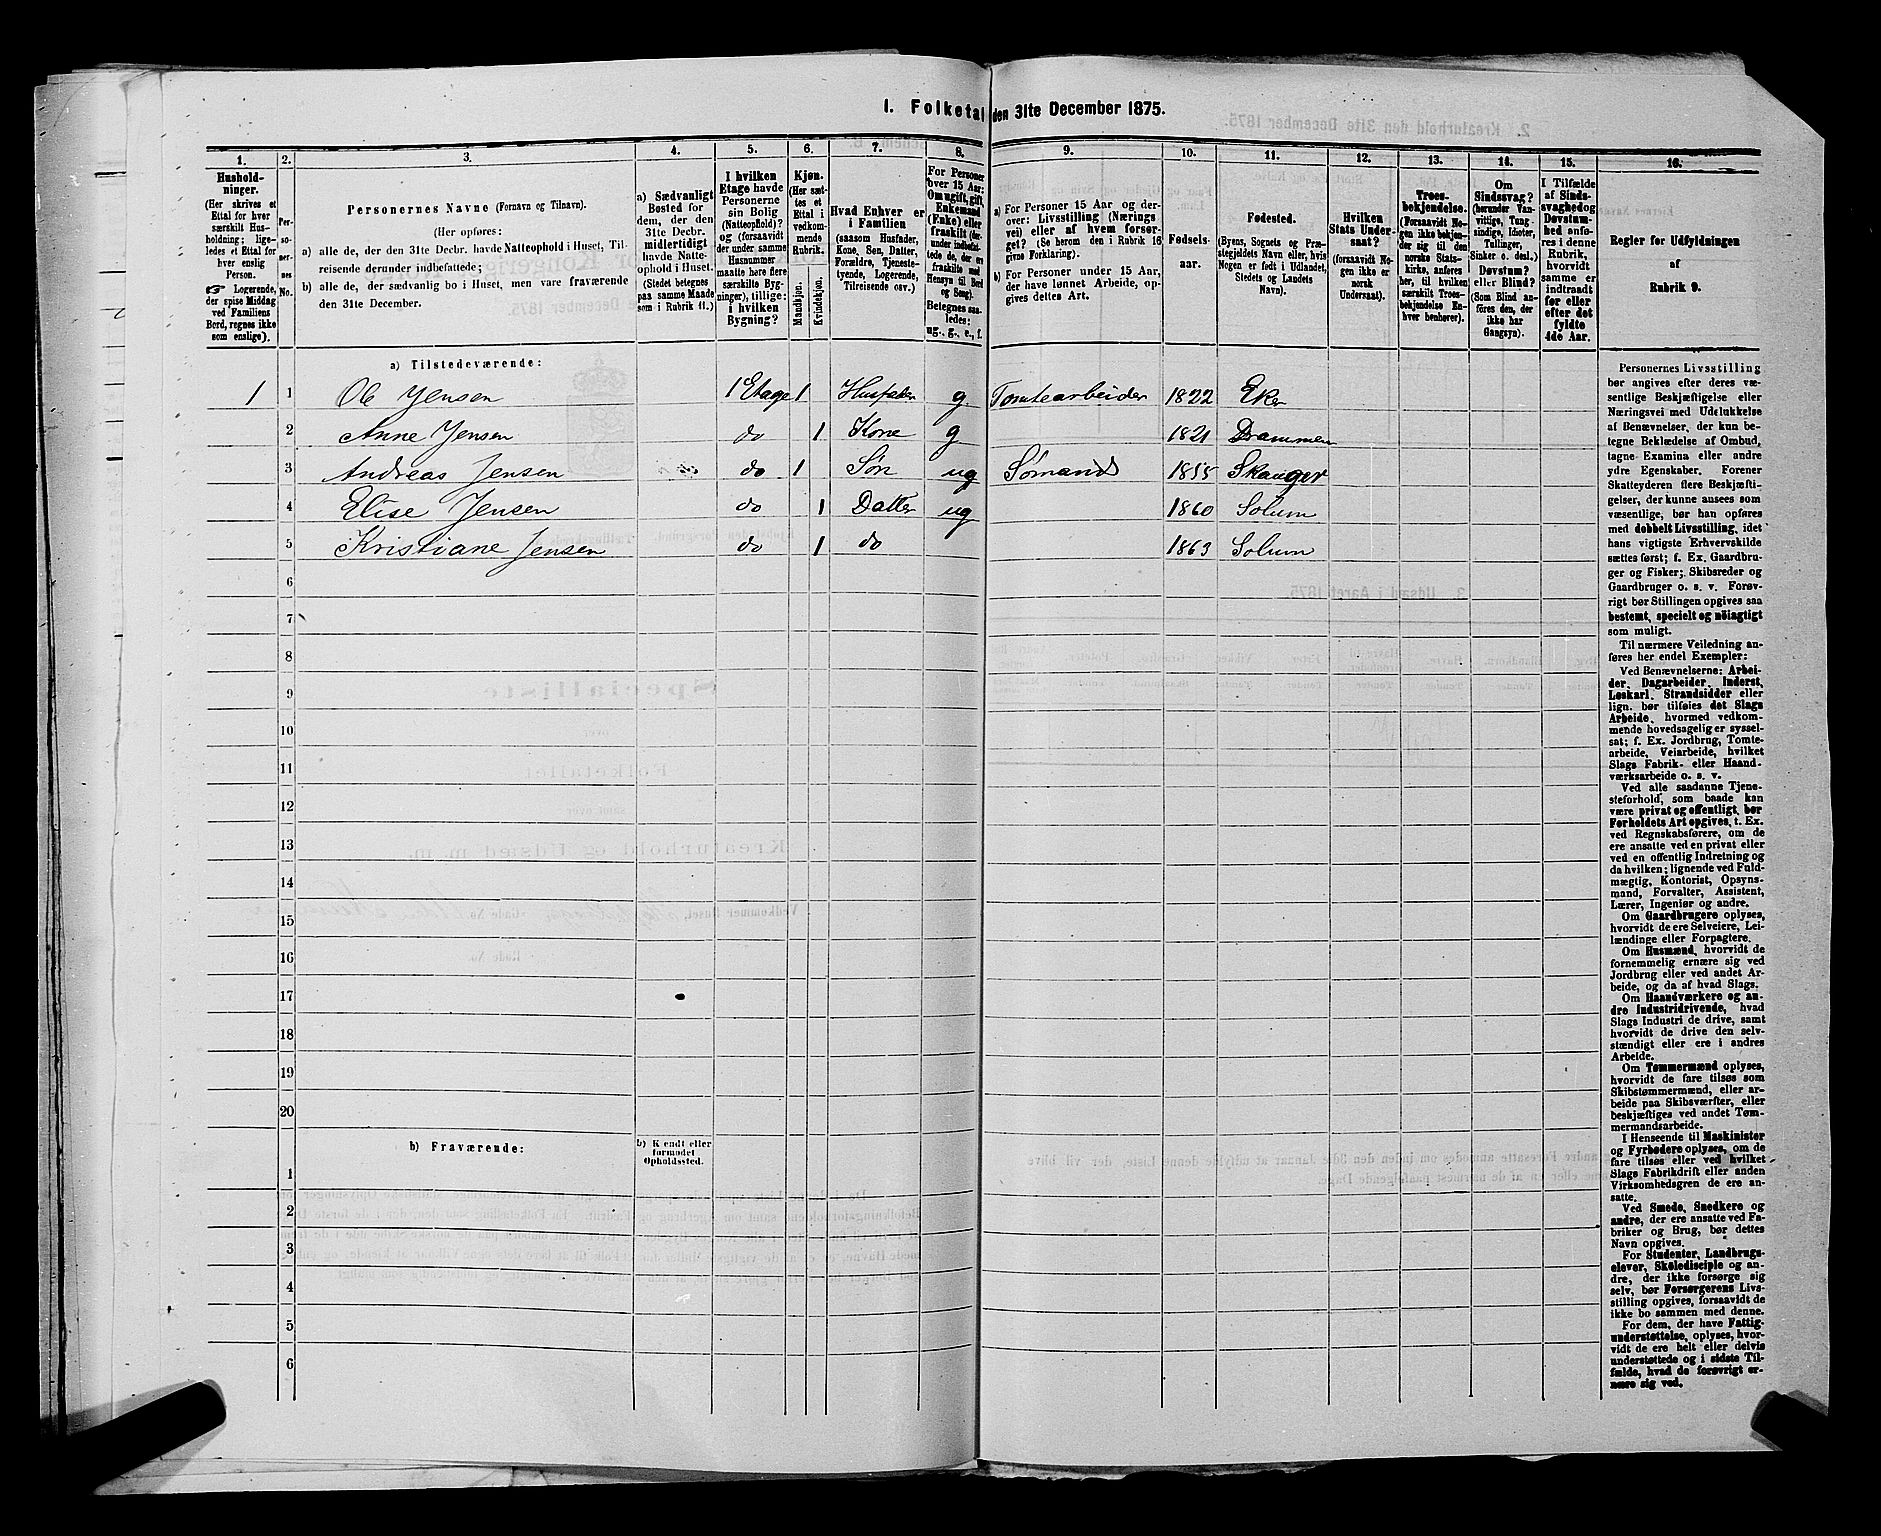 I. Folketal den 31te December 1875.
1. 2. 3. 4. 5. 6. 7. 8. 9. 10. 11. 12. 13. 14. 15. 16.
Hushold-
ninger.
(Her skrives et
Ettal for hver
særskilt Hus-
holdning; lige-
ledes et Ettal for
hver enslig
Person.
☞ Logerende,
der spise Middag
ved Familiens
Bord, regnes ikke
som enslige).
Per-
so-
ner-
nes
No.
Personernes Navne (Fornavn og Tilnavn).
(Her opføres:
a) alle de, der den 31te Decbr. havde Natteophold i Huset, Til-
reisende derunder indbefattede;
b) alle de, der sædvanlig bo i Huset, men vare fraværende
den 31te December.
a) Sædvanligt
Bosted for
dem, der den
31te Decbr.
midlertidigt
havde Natte-
ophold i Huset.
(Stedet betegnes
paa samme Maade
som i Rubrik 11.)
I hvilken
Etage havde
Personerne
sin Bolig
(Natteophold)?
og (forsaavidt
der under samme
Husnummer
maatte høre flere
særskilte Byg-
ninger), tillige:
i hvilken
Bygning?
Kjøn.
(Her sæt-
tes et
Ettal i
vedkom-
mende
Rubrik.
Mandkjøn.
Kvindekjøn.
Hvad Enhver er
i Familien
(saasom Husfader,
Kone, Søn, Datter,
Forældre, Tjeneste-
tyende, Logerende,
Tilreisende osv.)
For Personer
over 15 Aar:
Om ugift, gift,
Enkemand
(Enke) eller
fraskilt (der-
under indbefat-
tede de, der ere
fraskilte med
Hensyn til Bord
og Seng).
Betegnes saa-
ledes:
ug., g., e., f.
a) For Personer 15 Aar og der-
over: Livsstilling (Nærings
vei) eller af hvem forsør-
get? (Se herom den i Rubrik 16
givne Forklaring).
b) For Personer under 15 Aar,
der have lønnet Arbeide, op-
gives dettes Art.
Fødsels-
aar.
Fødested.
(Byens, Sognets og Præ-
stegjeldets Navn eller, hvis
Nogen er født i Udlandet,
Stedets og Landets
Navn).
Hvilken
Stats Under-
saat?
(forsaavidt No-
gen ikke er
norsk
Undersaat).
Troes-
bekjendelse.
(Forsaavidt No-
gen ikke bekjen-
der sig til den
norske Stats-
kirke, anføres
her, til hvilken
særskilt Troes-
bekjendelse En-
hver henhører).
Om
Sindssvag?
(herunder Van-
vittige, Tung-
sindige, Idioter,
Tullinger,
Sinker o. desl.)
Døvstum?
eller Blind?
(Som Blind an-
føres den, der
ikke har
Gangsyn).
I Tilfælde
af Sinds-
svaghed og
Døvstum-
hed anfø-
res i denne
Rubrik,
hvorvidt
samme er
indtraadt
før eller
efter det
fyldte
4de Aar.
Regler for Udfyldningen
af
Rubrik 9.
a) Tilstedeværende:
1 1 Ole Jensen 1 Etage 1 Husfader g Tomtearbeider 1822 Eker
2 Anne Jensen do 1 Kone g 1821 Drammen
3 Andreas Jensen do 1 Søn ug Sømand 1855 Skauger
4 Elise Jensen do 1 Datter ug 1860 Solum
5 Kristiane Jensen do 1 do 1863 Solum
6
7
8
9
10
11
12
13
14
15
16
17
18
19
20
b) Fraværende:
b) Kjendt eller
formodet
Opholdssted.
1
2
3
4
5
6
Personernes Livsstilling
bør angives efter deres væ-
sentlige Beskjæftigelse eller
Næringsvei med Udelukkelse
af Benævnelser, der kun be-
tegne Beklædelse af Ombud,
tagne Examina eller andre
ydre Egenskaber. Forener
Skatteyderen flere Beskjæfti-
gelser, der kunne ansees som
væsentlige, bør han opføres
med dobbelt Livsstilling, idet
hans vigtigste Erhvervskilde
sættes først; f. Ex. Gaardbru-
ger og Fisker; Skibsreder og
Gaardbruger o. s. v. Forøv-
rigt bør Stillingen opgives saa
bestemt, specielt og nöiagtigt
som muligt.
Til nærmere Veiledning an-
føres her endel Exempler:
Ved Benævnelserne: Arbei-
der, Dagarbeider, Inderst,
Løskarl, Strandsidder eller
lign. bør tilføies det Slags
Arbeide, hvormed vedkom-
mende hovedsagelig er syssel-
sat; f. Ex. Jordbrug, Tomte-
arbeide, Veiarbeide, hvilket
Slags Fabrik- eller Haand-
værksarbeide o. s. v.
Ved alle saadanne Tjene-
steforhold, som baade kan
være privat og offentligt, bør
Forholdets Art opgives, t. Ex.
ved Regnskabsførere, om de
ere ansatte ved en privat eller
ved en offentlig Indretning og
da hvilken; lignende ved Fuld-
mægtig, Kontorist, Opsyns-
mand, Forvalter, Assistent,
Lærer, Ingeniør og andre.
Om Gaardbrugere oplyses,
hvorvidt de ere Selveiere, Lei-
lændinge eller Forpagtere.
Om Husmænd, hvorvidt de
fornemmelig ernære sig ved
Jordbrug eller ved andet Ar-
beide, og da af hvad Slags.
Om Haandværkere og an-
dre Industridrivende, hvad
Slags Industri de drive, samt
hvorvidt de drive den selv-
stændigt eller ere i andres
Arbeide.
Om Tømmermænd oplyses,
hvorvidt de fare tilsøs som
Skibstømmermænd, eller ar-
beide paa Skibsværfter, eller
beskjæftiges ved andet Tøm-
mermandsarbeide.
I Henseende til Maskinister
og Fyrbødere oplyses, om de
fare tilsøs eller ved hvilket
Slags Fabrikdrift eller anden
Virksomhedsgren de ere an-
satte.
Ved Smede, Snedkere og
andre, der ere ansatte ved Fa-
briker og Brug, bør dettes
Navn opgives.
For Studenter, Landbrugs-
elever, Skoledisciple og an-
dre, der ikke forsørge sig
selv, bør Forsørgerens Livs-
stilling opgives, forsaavidt de
ikke bo sammen med denne.
For dem, der have Fattig-
understøttelse, oplyses, hvor-
vidt de ere helt eller delvis
understøttede og i sidste Til-
fælde, hvad de forøvrigt er-
nære sig ved.